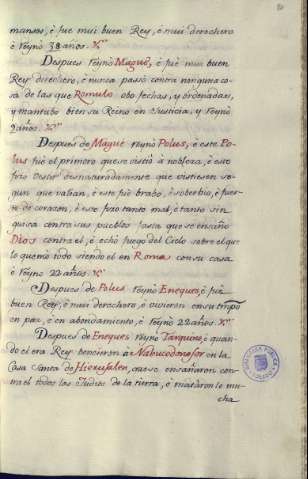 mansos, è fue mui buen Rey, è mui derechero
è reynò 38 años.
Despues reynò Maguè, è fuè mui buen
Rey derechero, è nunca passò contra ninguna co-
sa de las que Romulo obo fechas, y ordenadas,
y mantubo bien su Reino en Justicia, y reynò
años.
Despues de Maguè reyno Polus, è este Po-
lus fuè el primero que se vistiò à nobleza, è este
fizo vestir desnaturadamente que vistiesen se-
gun que valian, è este fuè brabo, è soberbio, è fuer-
te de corazon, è ese fizo tanto mal, è tanto sin-
guisa contra sus pueblos fasta que se ensañò
Dios contra el, è echò fuego del Cielo sobre el que
lo quemò todo siendo el en Roma con su casa
è reynò 22 años.
Despues de Polus reynò Eneques, è fuè
buen Rey, è mui derechero, è vivieron en su tiempo
en paz, è en abondamiento, è reynò 22 años.
Despues de Eneques reyno Tarquino, è quan-
do el era Rey vencieron à Nabucodonosor en la
Casa Santa de Hierusalen, ca se ensañaron con-
tra el todos los Judios de la tierra, è mataron lo mu-
cha